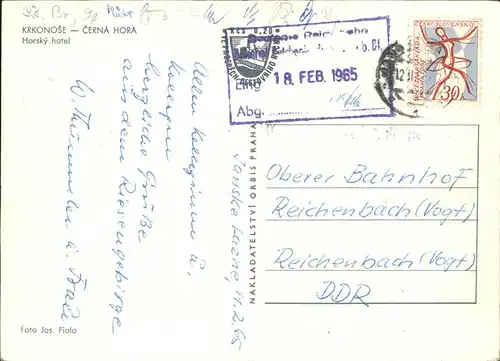 KRKONOŠE — ČERNÁ HORA
Horský hotel
Allen Kolleginnen u.
Kollegen
herzliche Grüße
aus dem Riesengebirge
W. u. Frau
Janské Lázně, 11.2.65
Foto Jos. Fiala
NAKLADATELSTVÍ ORBIS PRAHA
KČS 0,20
Eing.
18. FEB. 1965
Abg.
ČESKOSLOVENSKO
1,30
Oberer Bahnhof
Reichenbach (Vogt)
Reichenbach (Vogt)
DDR